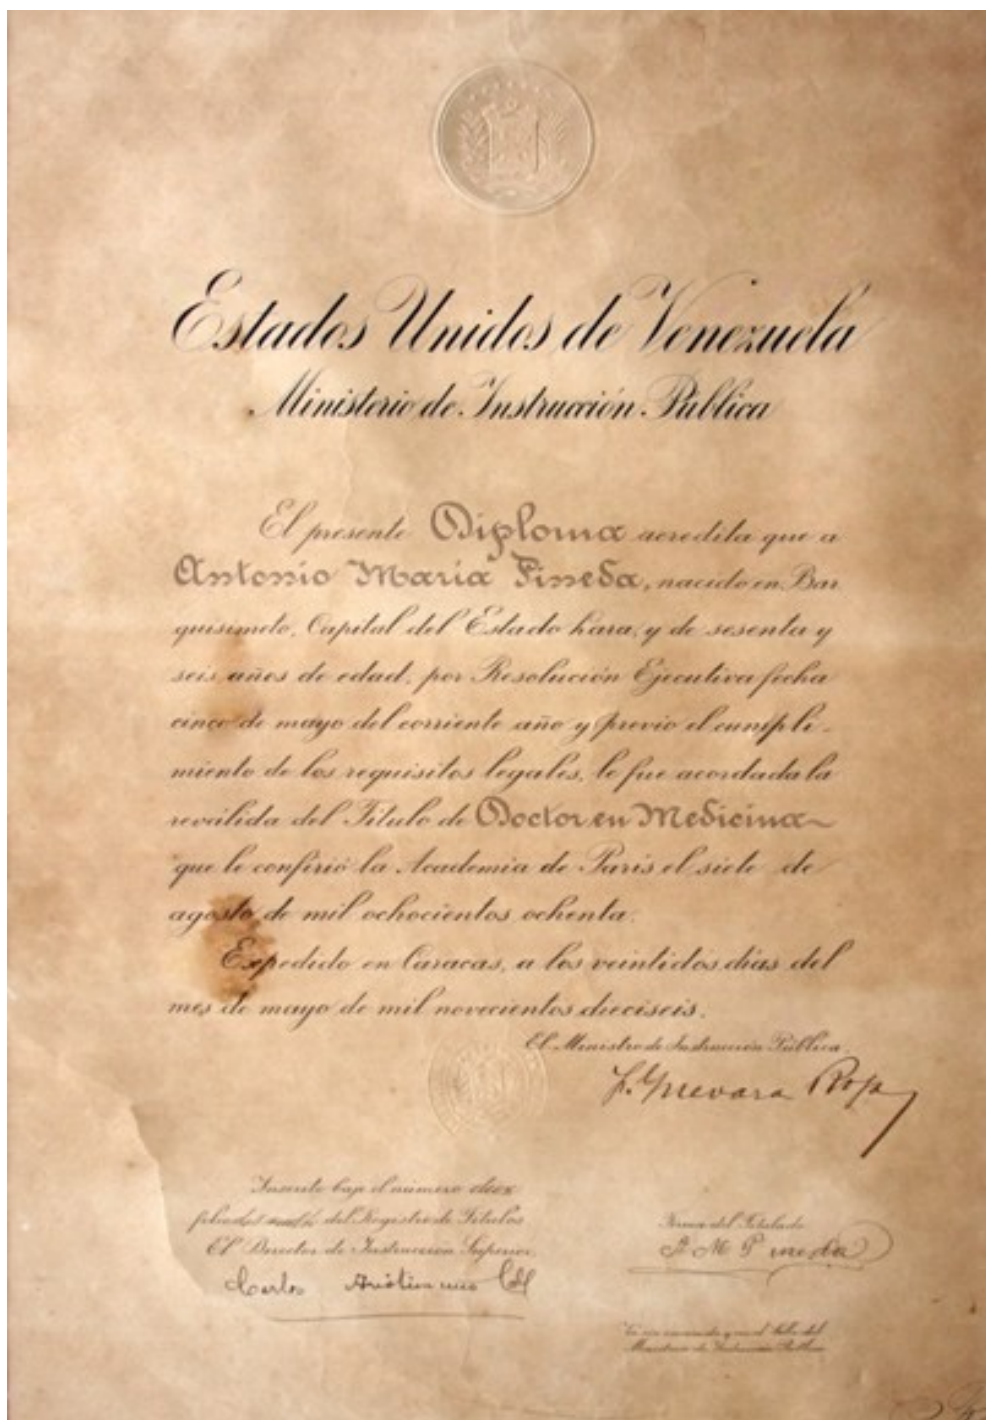 Estados Unidos de Venezuela
Ministerio de Instrucción Pública
El presente Diploma acredita que a
Antonio María Pineda, nacido en Bar
quisimeto, Capital del Estado Lara, y de sesenta y
seis años de edad, por Resolución Ejecutiva fecha
cinco de mayo del corriente año y previo el cumpli-
miento de los requisitos legales, le fue acordada la
reválida del Título de Doctor en Medicina
que le confirió la Academia de Paris el siete de
agosto de mil ochocientos ochenta.
Expedido en Caracas, a los veintidos días del
mes de mayo de mil novecientos dieciseis.
El Ministro de Instrucción Pública,
F. Guevara Rojas
Inscrito bajo el número doce
del Registro de Títulos
El Director de Instrucción Superior,
Carlos Aristimuño Coll
Firma del Titulado
A M Pineda
Ministerio de Instrucción Pública